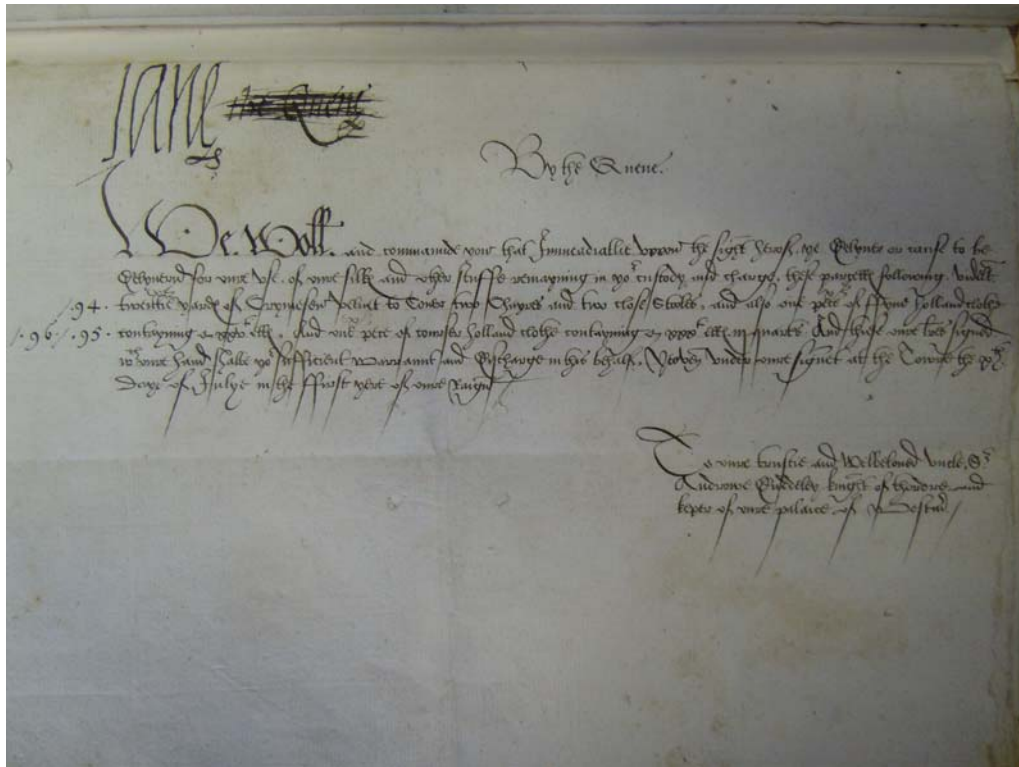 Jane the Quene
By the Quene.
We Woll and commaunde you that Immeadiatlie uppon the sight herof, ye Delyver or cause to be
Delyvered for oure use, of oure silkes and other stuffe remayning in yor custody and charge, these parcelles following,
.94. twentie yardes of Crymesen Velvet to Cover two Chayres and two close Stoles, and also one pece of ffyne Holland clothe
.96. .95. contayning And one pece of courser Holland clothe contayning quarters And thiese oure lres signed
wt oure hand shalbe yor sufficient warraunt and discharge in this behalf. Yeoven under oure signet at the Towre the
Daye of Julye in the ffirst yere of oure Raign
To oure trustie and Welbeloved Uncle, Sr
Andrewe Dudeley knight of thordre and
keper of oure palaice of Westmr